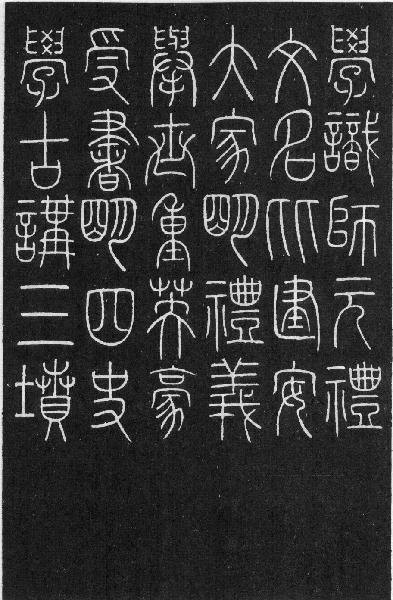 學識師元禮
文名比建安
大家明禮義
舉世重英豪
受書明四史
學古講三墳